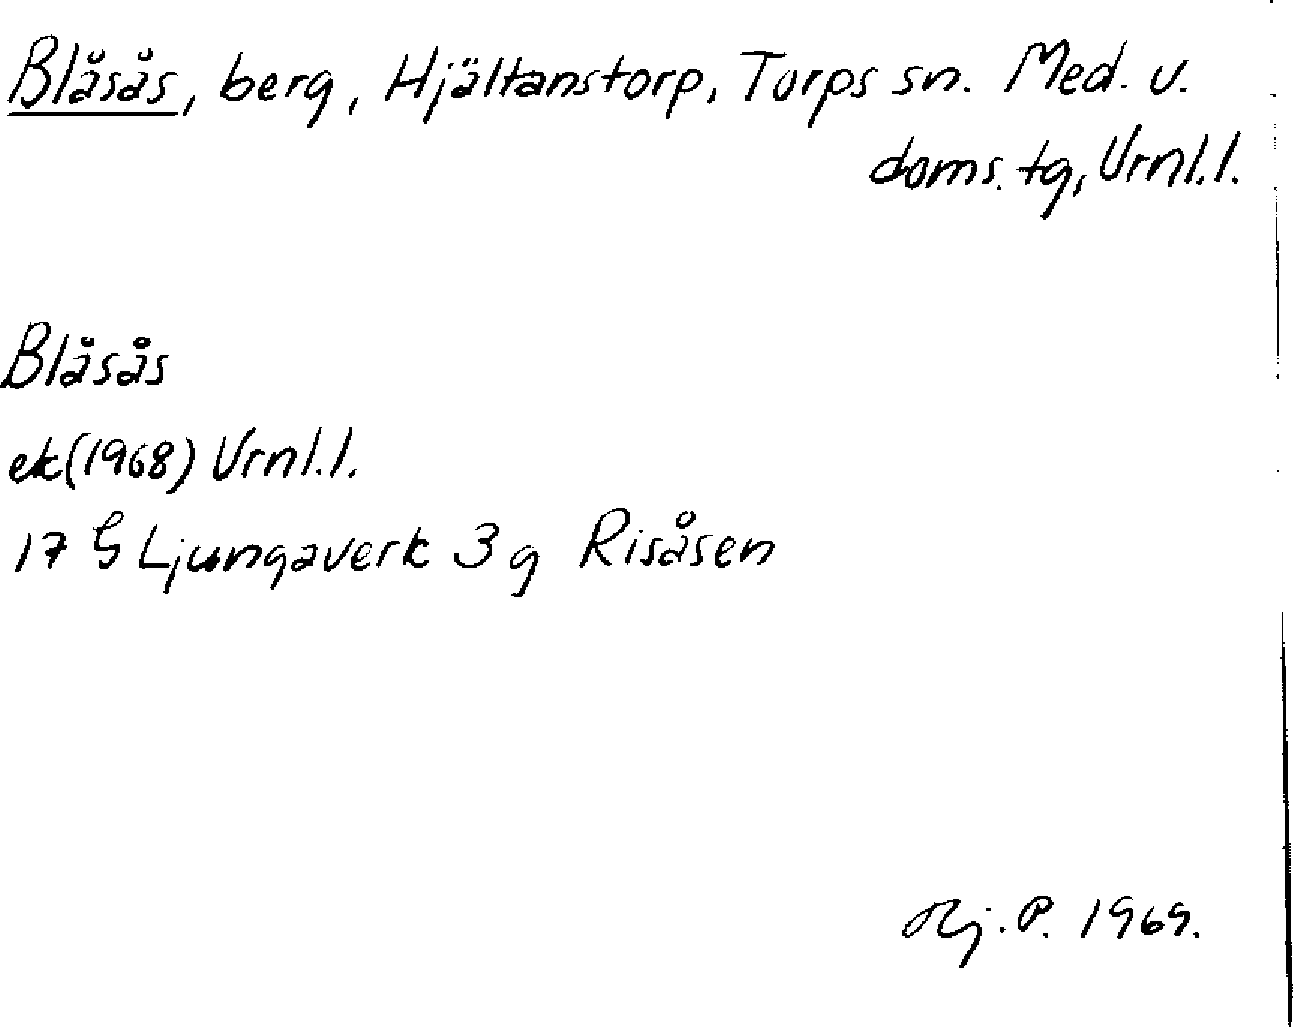 Blåsås, berg, Hjältanstorp, Torps sn. Med. v.
doms. tg, Vrnl.l.
Blåsås
ek(1968) Vrnl.l.
17 G Ljungaverk 3 g Risåsen
Hj. P. 1969.